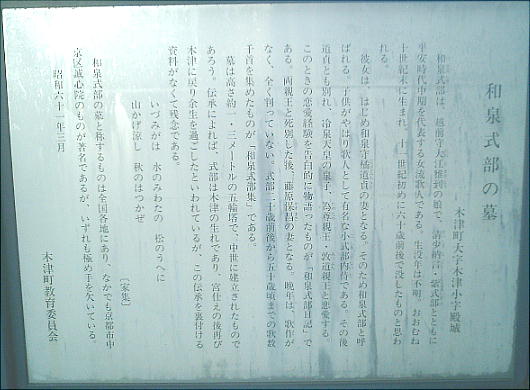 和泉式部の墓
木津町大字木津小字殿城
和泉式部は、越前守大江雅到の娘で、清少納言・紫式部とともに
平安時代中期を代表する女流歌人である。生没年は不明、おおむね
十世紀末に生まれ、十一世紀初めに六十歳前後で没したものと思わ
れる。
彼女は、はじめ和泉守橘道貞の妻となる。そのため和泉式部と呼
ばれる。子供がやはり歌人として有名な小式部内侍である。その後
道貞とも別れ、冷泉天皇の皇子、為尊親王・敦道親王と恋愛する
このときの恋愛経験を告白的に物語ったものが「和泉式部日記」で
ある。両親王と死別した後、藤原保昌の妻となる。晩年は、歌作が
なく、全く判っていない。式部二十歳前後から五十歳頃までの歌数
千首を集めたものが「和泉式部集」である。
墓は高さ約一・三メートルの五輪塔で、中世に建立されたもので
あろう。伝承によれば、式部は木津の生れであり、宮仕えの後再び
木津に戻り余生を過ごしたといわれているが、この伝承を裏付ける
資料がなくて残念である。
いづみがは 水のみわたの 松のうへに
山かげ涼し 秋のはつかぜ
〔家集〕
和泉式部の墓と称するものは全国各地にあり、なかでも京都市中
京区誠心院のものが著名であるが、いずれも極め手を欠いている。
昭和六十一年三月
木津町教育委員会